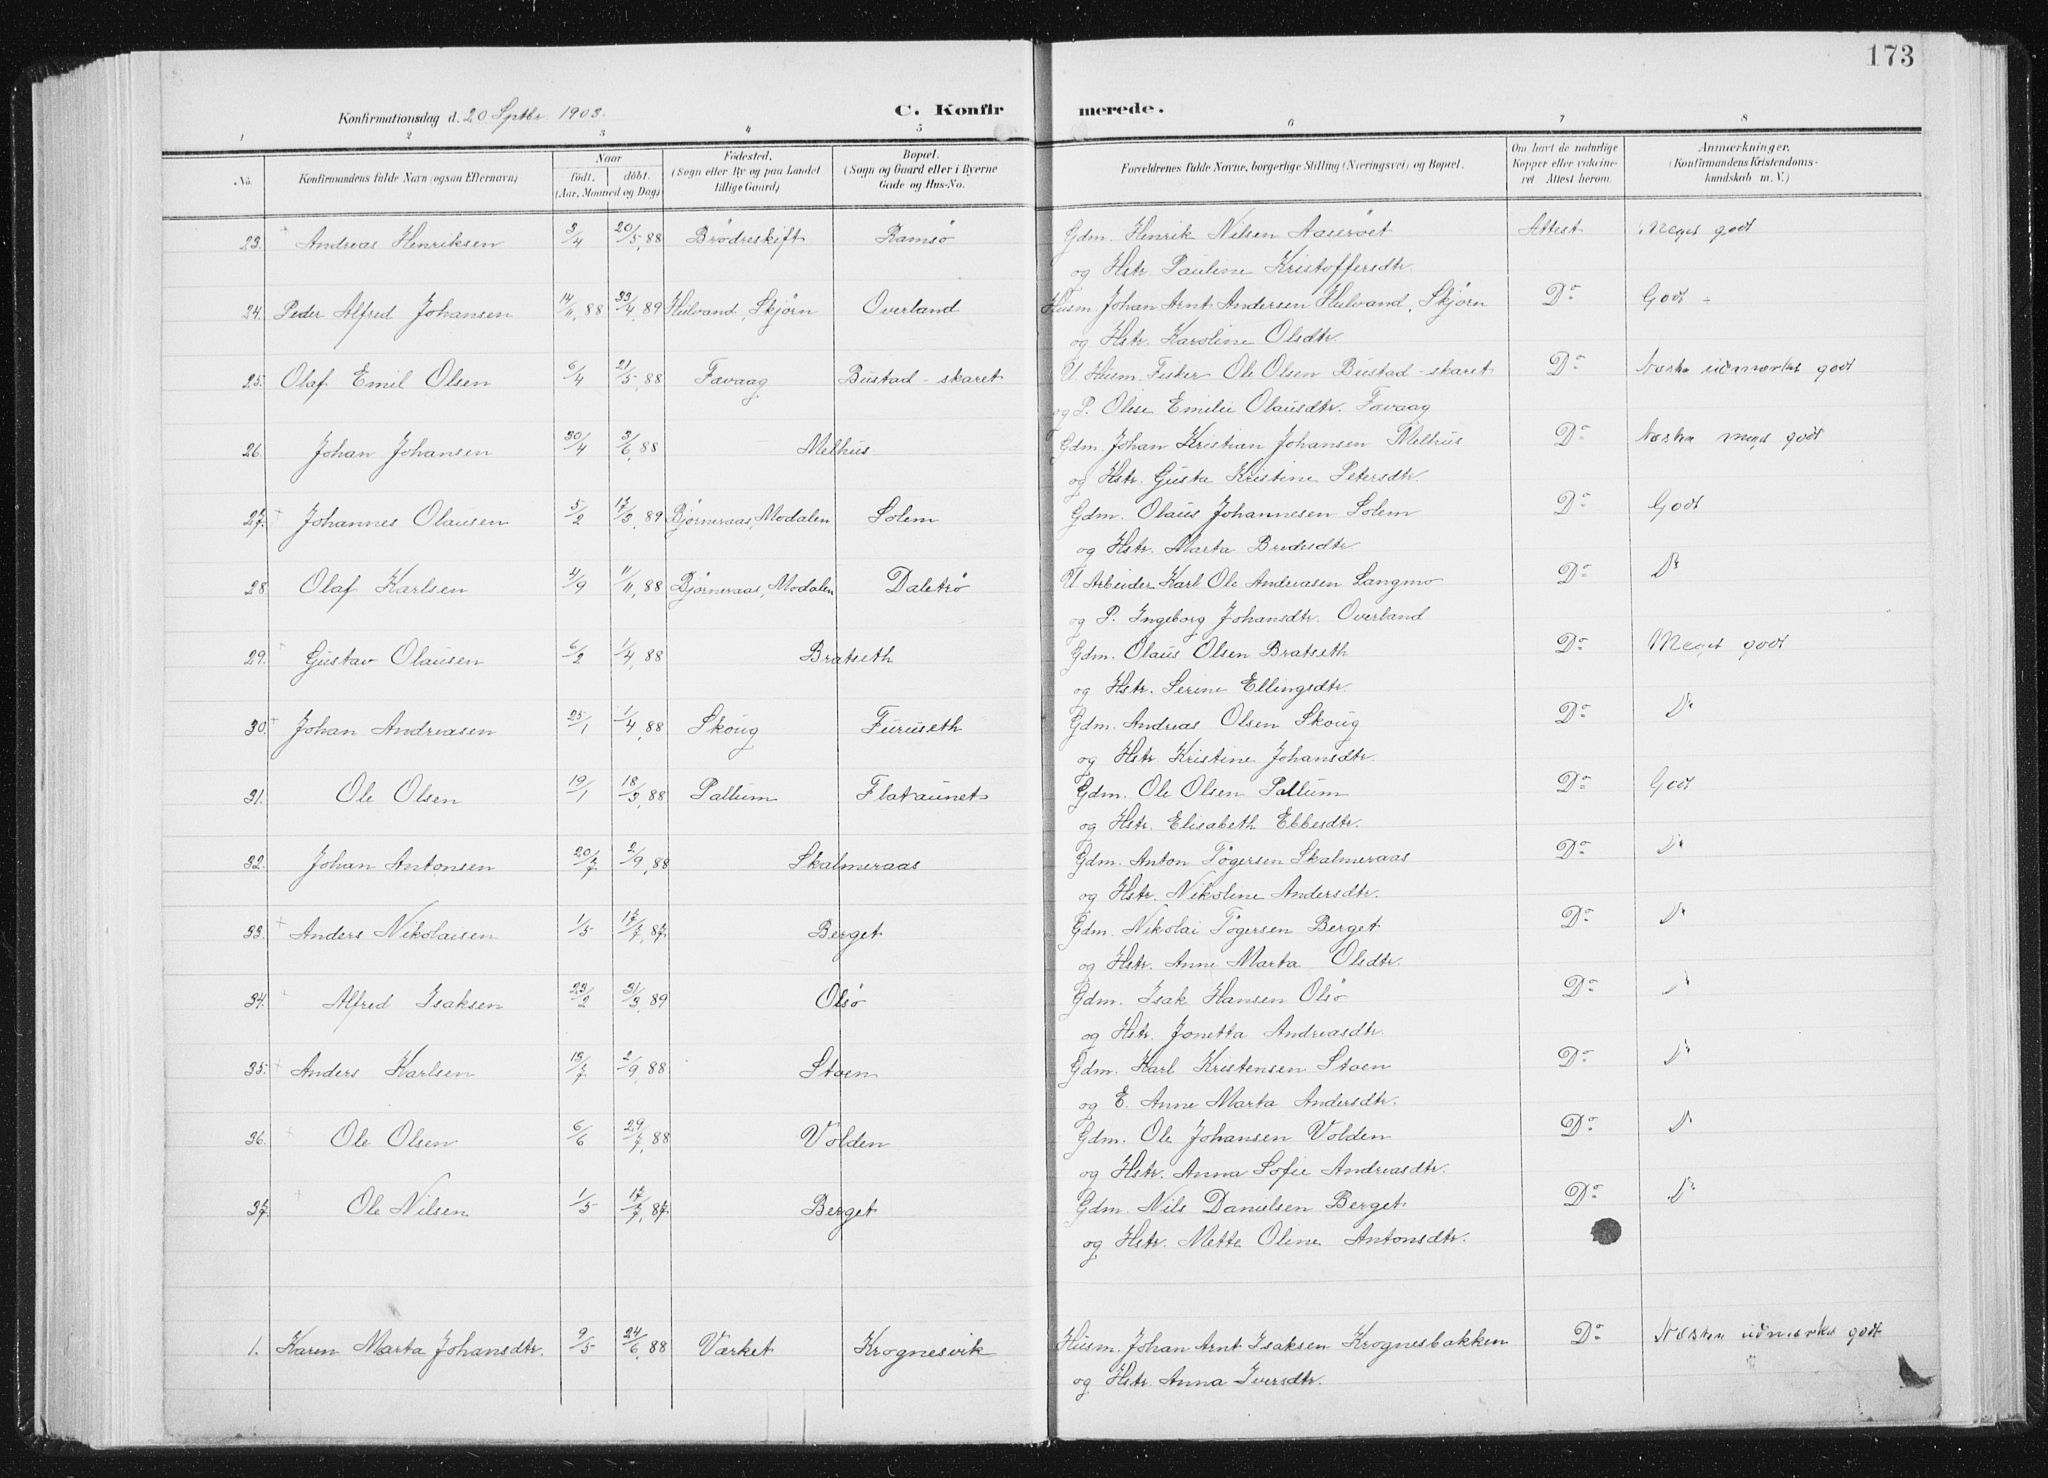 173
Konfirmationsdag d. 20 Septbr. 1903. C. Konfirmerede.
1 2 3 4 5 6 7 8
No. Konfirmandens fulde Navn (ogsaa Efternavn) Naar födt. döbt. (Aar, Maaned og Dag) Födested. (Sogn eller By og paa Landet tillige Gaard) Bopæl. (Sogn og Gaard eller i Byerne Gade og Hus-No. Forældrenes fulde Navne, borgerlige Stilling (Næringsvei) og Bopæl. Om havt de naturlige Kopper eller vaccineret Attest herom. Anmærkninger. (Konfirmandens Kristendomskundskab m. V.)
23. Andreas Henriksen 3/4 20/5, 88 Brødreskift Ramsø Gdm. Henrik Nilsen Aaserøet Attest Meget godt
og Hstr. Pauline Kristoffersdtr.
24. Peder Alfred Johansen 14/11, 88 23/4, 89 Heilvand, Skjørn Overland Husm. Johan Arnt Andersen Heilvand, Skjørn Do Godt
og Hstr. Karoline Olsdtr.
25. Olaf Emil Olsen 6/4 21/5, 88 Fævaag Bustad-skaret U Husm. Fisker Ole Olsen Bustad-skaret Do Næsten udmærket godt
og P. Oline Emilie Olausdtr. Fævaag
26. Johan Johansen 30/4 3/6, 88 Melhus Gdm. Johan Kristian Johansen Melhus Do Næsten meget godt
og Hstr. Gusta Kristine Petersdtr.
27. Johannes Olausen 5/2 17/3, 89 Bjørneraas, Modalen Solem Gdm. Olaus Johannesen Solem Do Godt
og Hstr. Marta Bredesdtr.
28. Olaf Karlsen 4/9 11/11, 88 Bjørneraas, Modalen Daletrø U Arbeider Karl Ole Andreasen Langmo Do Do
og P. Ingeborg Johansdtr. Overland
29. Gustav Olausen 6/2 1/4, 88 Bratseth Gdm. Olaus Olsen Bratseth Do Meget godt
og Hstr. Serine Ellingsdtr.
30. Johan Andreasen 25/1 1/4, 88 Skoug Furuseth Gdm. Andreas Olsen Skoug Do Do
og Hstr. Kristine Johansdtr.
31. Ole Olsen 19/1 18/3, 88 Pallum Flataunet Gdm. Ole Olsen Pallum Do Godt
og Hstr. Elisabeth Ebbesdtr.
32. Johan Antonsen 20/7 2/9, 88 Skalmeraas Gdm. Anton Tøgersen Skalmeraas Do Do
og Hstr. Nikoline Andersdtr.
33. Anders Nikolaisen 1/5 17/7, 87. Berget Gdm. Nikolai Tøgersen Berget Do Do
og Hstr. Anne Marta Olsdtr.
34. Alfred Isaksen 23/2 31/3, 89 Olsø Gdm. Isak Hansen Olsø Do Do
og Hstr. Jonetta Andreasdtr.
35. Anders Karlsen 19/7 2/9, 88 Stoen Gdm. Karl Kristensen Stoen Do Do
og E. Anne Marta Andersdtr.
36. Ole Olsen 6/6 29/7, 88 Volden Gdm. Ole Johansen Volden Do Do
og Hstr. Anna Sofie Andreasdtr.
37. Ole Nilsen 1/5 17/7, 87. Berget Gdm. Nils Danielsen Berget Do Do
og Hstr. Mette Oline Antonsdtr.
1. Karen Marta Johansdtr. 9/5 24/6, 88 Værket Krognesvik Husm. Johan Arnt Isaksen Krognesbakken Do Næsten udmærket godt
og Hstr. Anna Iversdtr.